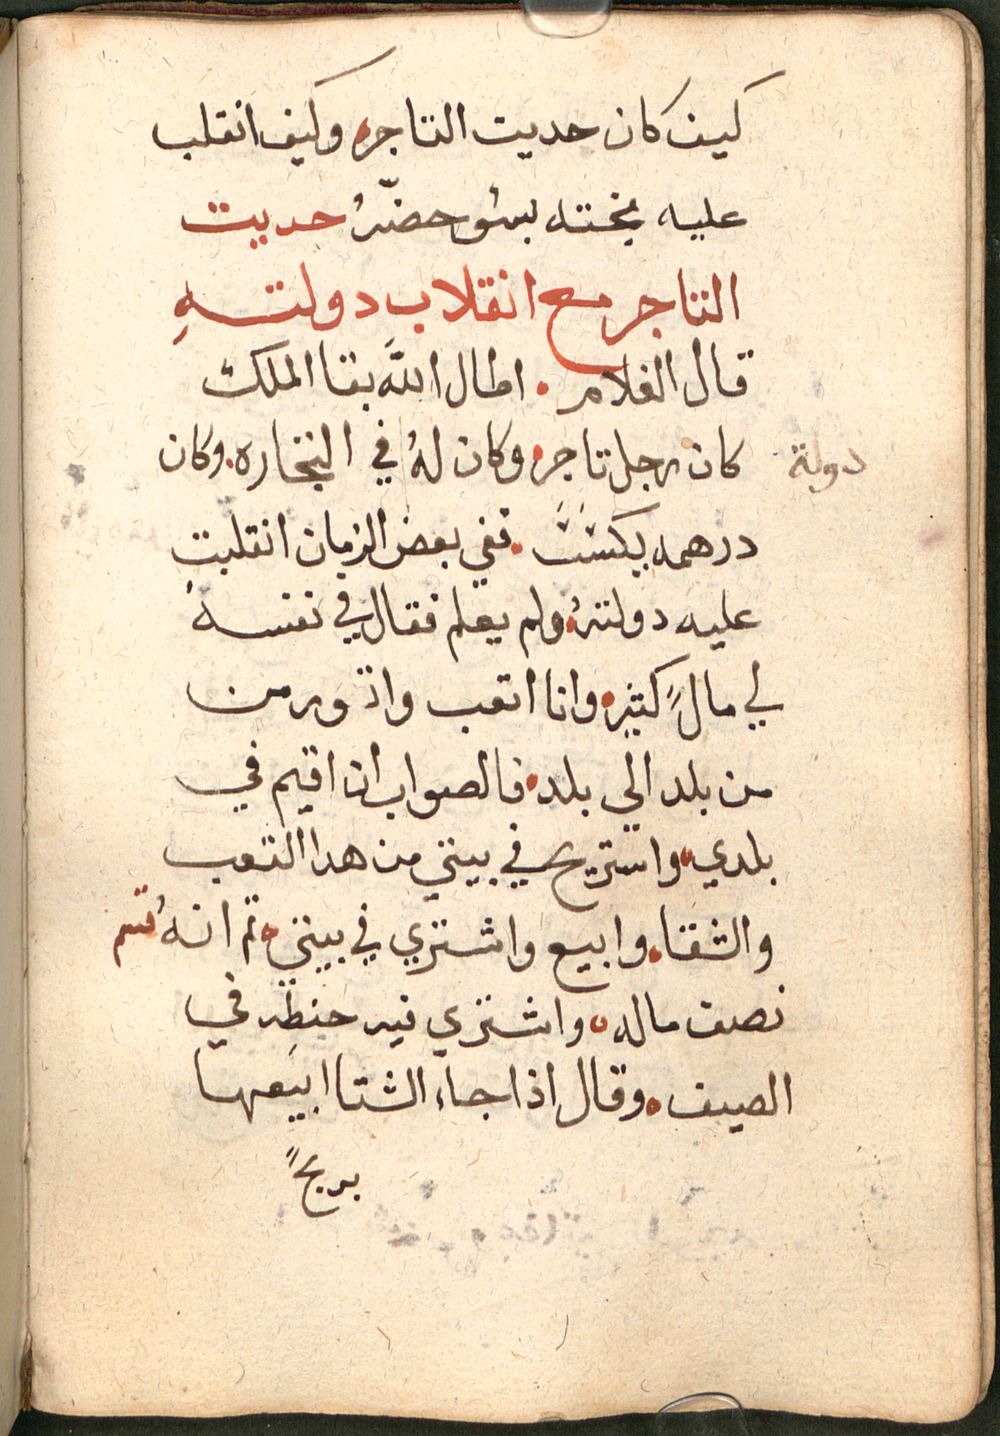 كيف كان حديت التاجر وكيف انقلب
عليه بخته بسو حضّهُ حديت
التاجر مع انقلاب دولتهِ
قال الغلام اطال اللَّه بقا الملك
كان رجل تاجر وكان لهُ في التجاره وكان
دولة
درهمه يكسب ففي بعض الزمان انقلبت
عليه دولتهُ ولم يعلم فقال في نفسهُ
لي مالًا كتير وانا اتعب وادور من
من بلد الى بلد فالصواب ان اقيم في
بلدي واستريح في بيتي من هدا التعب
والشقا وابيع واشتري في بيتي تم انهُ قسم
نصف ماله واشتري فيه حنطه في
الصيف وقال اذا جاء الشتا ابيعها
بربحًا